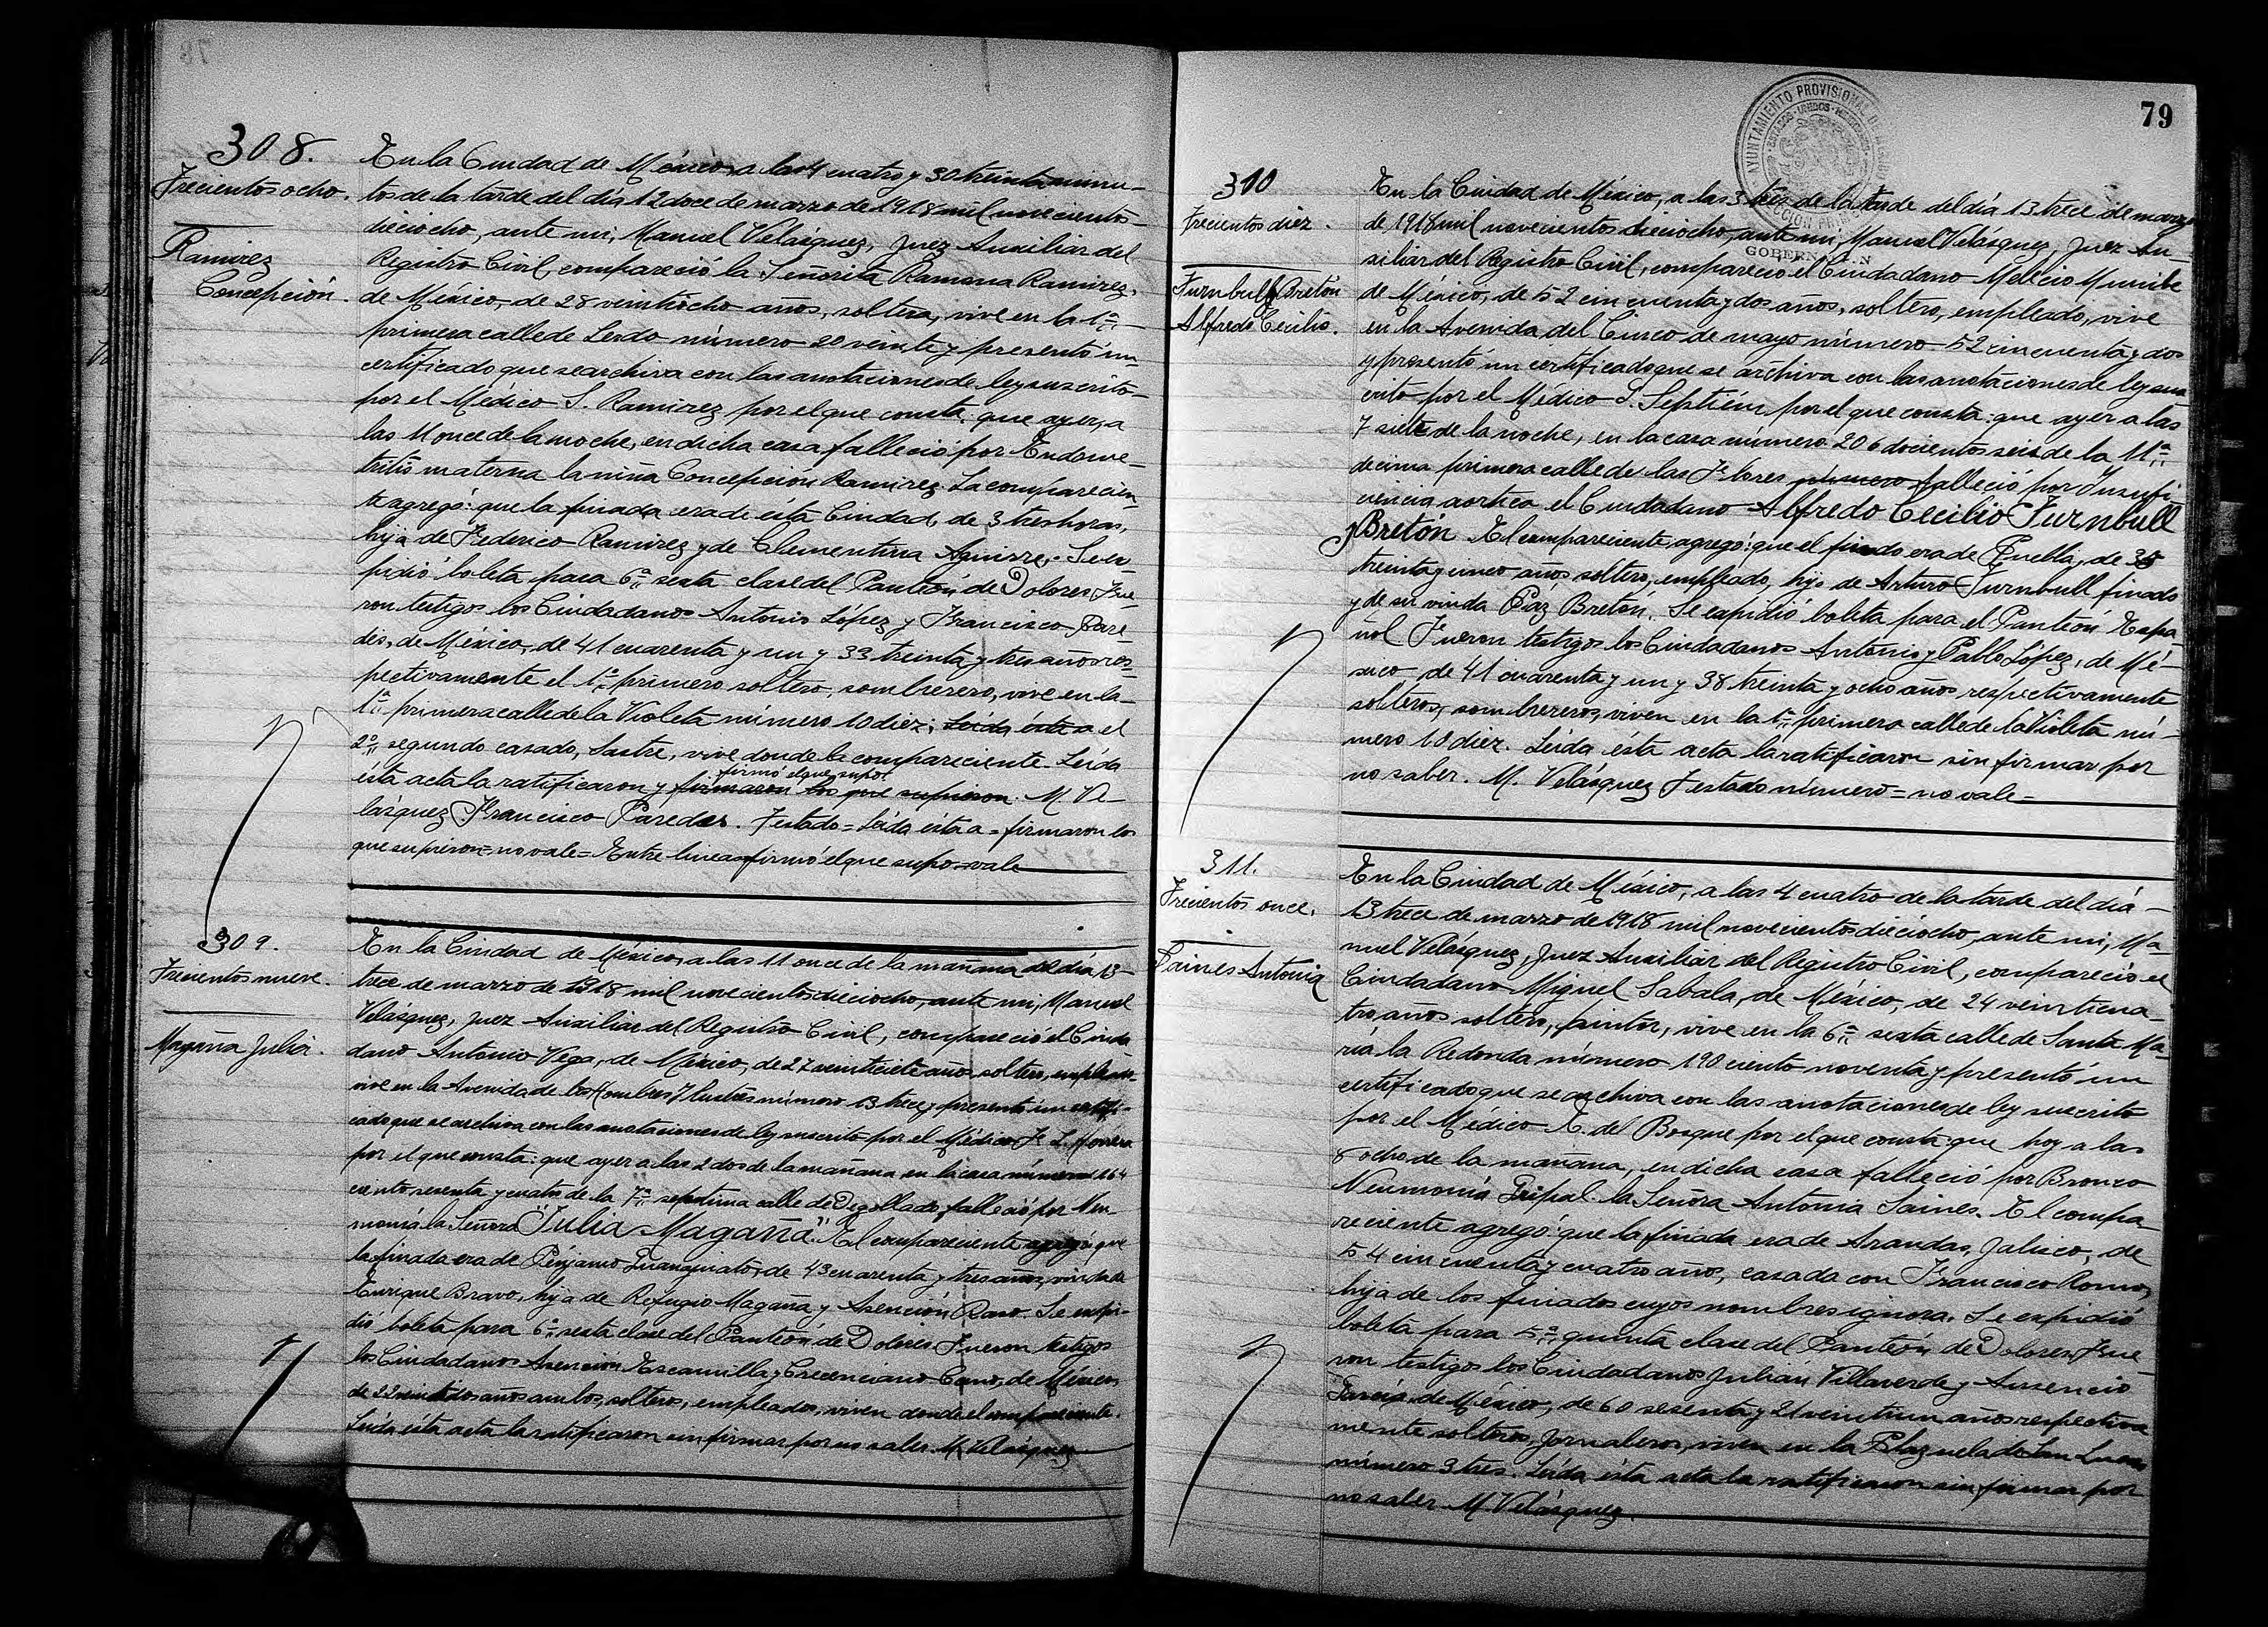 308.
Trecientos ocho.
Ramirez
Concepción.
En la Ciudad de México, a las 4 cuatro y 30 treinta minu-
tos de la tarde del día 12 doce de marzo de 1918 mil novecientos
dieciocho, ante mi, Manuel Velásquez, Juez Auxiliar del
Registro Civil, compareció la Señorita Ramona Ramirez,
de México, de 28 veintiocho años, soltera, vive en la 1a.
primera calle de Lerdo número 20 veinte y presentó un
certificado que se archiva con las anotaciones de ley suscrito
por el Médico S. Ramirez por el que consta: que ayer, a
las 11 once de la noche, en dicha casa falleció por Endome-
tritis materna la niña Concepción Ramirez. La comparecien
te agregó: que la finada era de ésta Ciudad, de 3 tres horas,
hija de Federico Ramirez y de Clementina Aguirre. Se ex
pidió boleta para 6a. sexta clase del Panteón de Dolores, Fue-
ron testigos los Ciudadanos Antonio López y Francisco Pare
des, de México, de 41 cuarenta y un y 33 treinta y tres años res-
pectivamente el 1o. primero soltero, sombrerero, vive en la
1a. primera calle de la Violeta número 10 diez; Leída ésta a el
2o. segundo casado, Sastre, vive donde la compareciente. Leída
firmó el que supo.
ésta acta la ratificaron y firmaron los que supieron. M. Ve-
lásquez Francisco Paredes. Testado = Leída ésta a = firmaron los
que supieron = no vale = Entre lineas firmó el que supo = vale
309.
Trecientos nueve.
Magaña Julia.
En la Ciudad de México, a las 11 once de la mañana del día 13
trece de marzo de 1918 mil novecientos dieciocho, ante mi, Manuel
Velásquez, Juez Auxiliar del Registro Civil, compareció el Ciuda
dano Antonio Vega, de México, de 27 veintisiete años, soltero, empleado,
vive en la Avenida de los Hombres Ilustres número 13 trece y presentó un certifi-
cado que se archiva con las anotaciones de ley suscrito por el Médico F. L.
por el que consta: que ayer a las 2 dos de la mañana en la casa número 164
ciento sesenta y cuatro de la 7a. septima calle de Degollado falleció por Neu-
monía la Señora "Julia Magaña". El compareciente agregó: que
la finada era de Pénjamo Guanajuato, de 43 cuarenta y tres años, viuda de
Enrique Bravo, hija de Refugio Magaña y Asención Razo. Se expi-
dió boleta para 6a. sexta clase del Panteón de Dolores. Fueron testigos
los Ciudadanos Asención Escamilla y Crecenciano Cano, de México,
de 22 veintidos años ambos, solteros, empleados, viven donde el compareciente.
Leída ésta acta la ratificaron sin firmar por no saber. M. Velásquez
79
AYUNTAMIENTO PROVISIONAL
ESTADOS UNIDOS MEXICANOS
GOBERNACION
310
Trecientos diez.
Turnbull y Bretón
Alfredo Cecilio.
En la Ciudad de México, a las 3 tres de la tarde del día 13 trece de marzo
de 1918 mil novecientos dieciocho, ante mi, Manuel Velásquez, Juez Au-
siliar del Registro Civil, compareció el Ciudadano Melecio Munibe
de México, de 52 cincuenta y dos años, soltero, empleado, vive
en la Avenida del Cinco de mayo número 52 cincuenta y dos
y presentó un certificado que se archiva con las anotaciones de ley sus
crito por el Médico S. Septién por el que consta: que ayer a las
7 siete de la noche, en la casa número 206 docientos seis de la 11a.
decima primera calle de las Flores número falleció por Insufi-
ciencia aortica el Ciudadano Alfredo Cecilio Turnbull
y Bretón. El compareciente agregó: que el finado era de Puebla, de 35
treinta y cinco años soltero, empleado, hijo de Arturo Turnbull finado
y de su viuda Paz Bretón. Se expidió boleta para el Panteón Espa
ñol. Fueron testigos los Ciudadanos Antonio y Pablo López, de Mé-
xico, de 41 cuarenta y un y 38 treinta y ocho años respectivamente
solteros, sombrereros, viven en la 1a. primera calle de la Violeta nú-
mero 10 diez. Leída ésta acta la ratificaron sin firmar por
no saber. M. Velásquez Testado número = no vale =
311.
Trecientos once.
Saines Antonia
En la Ciudad de México, a las 4 cuatro de la tarde del día
13 trece de marzo de 1918 mil novecientos dieciocho, ante mi, Ma-
nuel Velásquez, Juez Auxiliar del Registro Civil, compareció el
Ciudadano Miguel Sabala, de México, de 24 veinticua-
tro años soltero, pintor, vive en la 6a. sexta calle de Santa Ma-
ria la Redonda número 190 ciento noventa y presentó un
certificado que se archiva con las anotaciones de ley suscrito
por el Médico E. del Bosque por el que consta: que hoy a las
8 ocho de la mañana, en dicha casa falleció por Bronco
Neumonía Gripal la Señora Antonia Saines. El compa-
reciente agregó: que la finada era de Arandas, Jalisco, de
54 cincuenta y cuatro años, casada con Francisco Romo,
hija de los finados cuyos nombres ignora. Se expidió
boleta para 5a. quinta clase del Panteón de Dolores, Fue
ron testigos los Ciudadanos Julián Villaverde y Ausencio
García, de México, de 60 sesenta y 21 veintiun años respectiva
mente solteros, jornaleros, viven en la Plazuela de San Lucas
número 3 tres. Leída ésta acta la ratificaron sin firmar por
no saber. M. Velásquez.